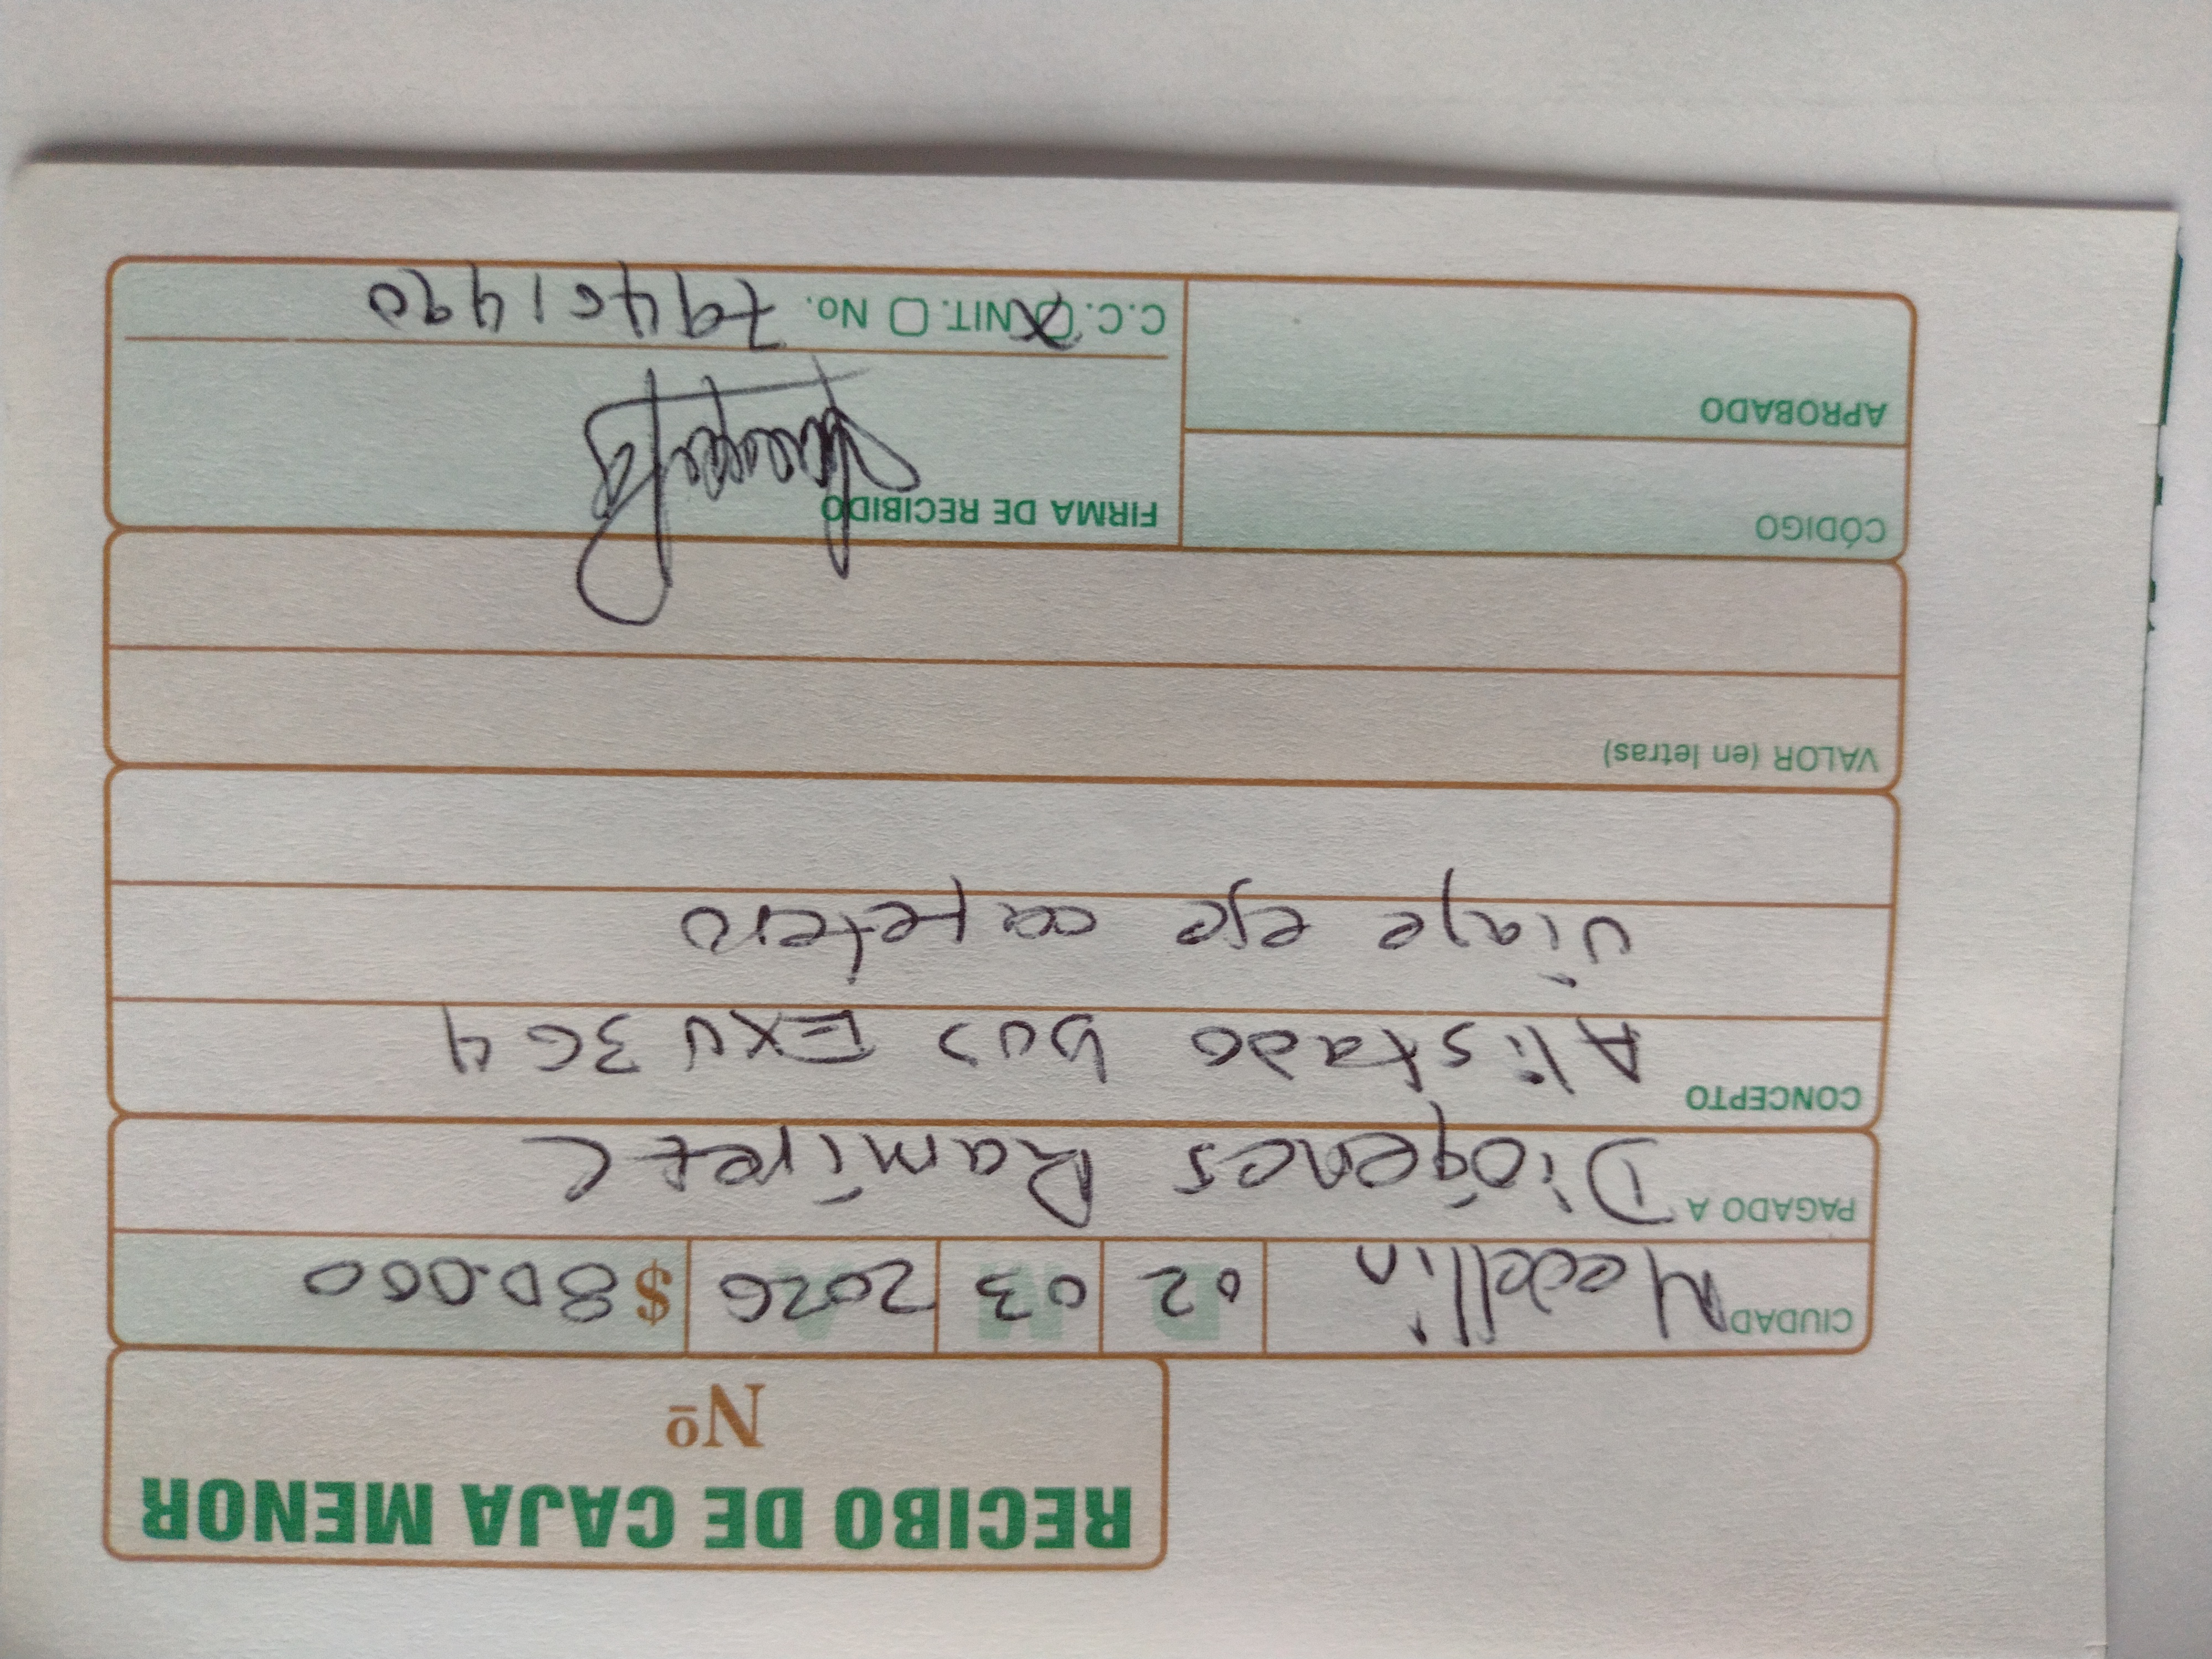 RECIBO DE CAJA MENOR
Nº
CIUDAD Medellin D 02 M 03 A 2026 $ 80.000
PAGADO A Diógenes Ramírez C
CONCEPTO
Alistado bus EXU364
viaje eje cafetero
VALOR (en letras)
CÓDIGO
APROBADO
FIRMA DE RECIBIDO
C.C. X NIT. No. 79401490